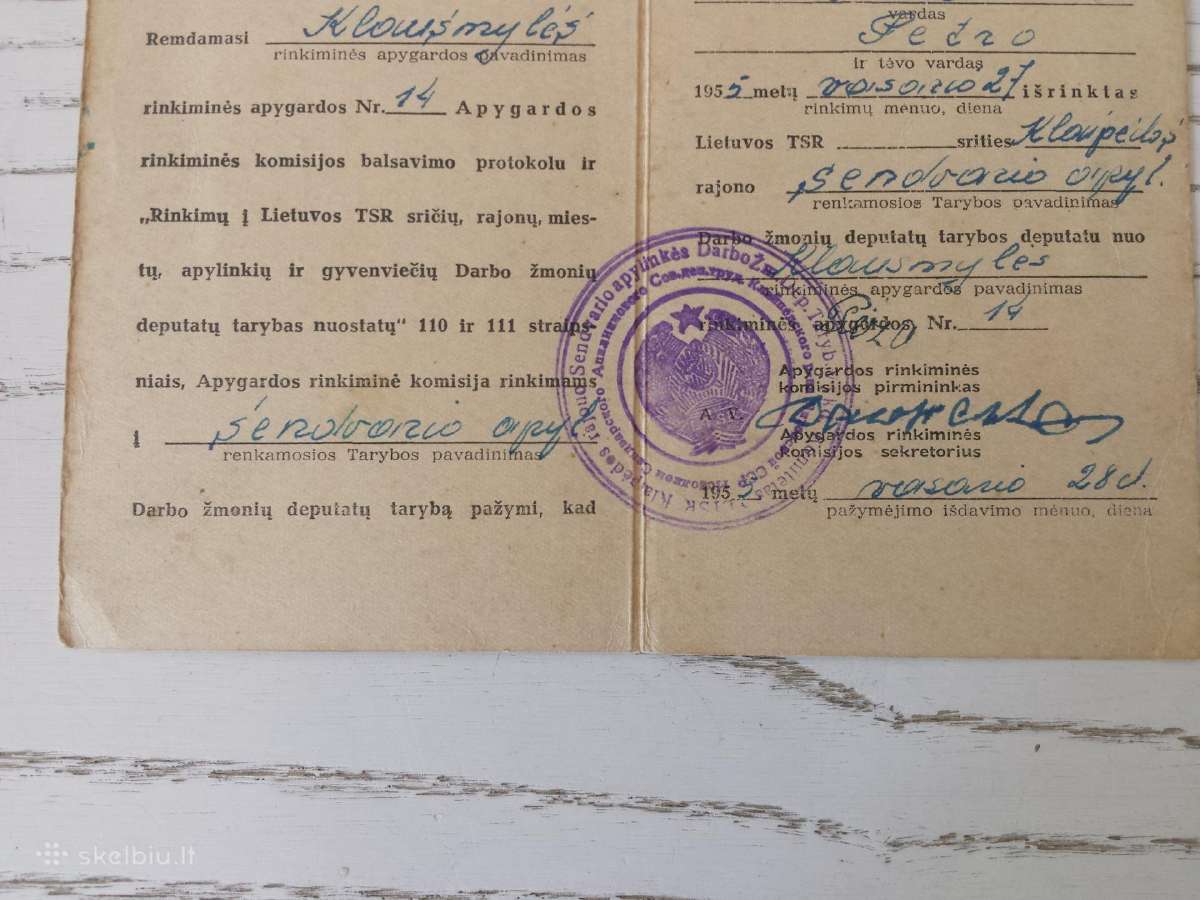 Remdamasi Klausmylės
rinkiminės apygardos pavadinimas
rinkiminės apygardos Nr. 14 Apygardos
rinkiminės komisijos balsavimo protokolu ir
„Rinkimų į Lietuvos TSR sričių, rajonų, mies-
tų, apylinkių ir gyvenviečių Darbo žmonių
deputatų tarybas nuostatų" 110 ir 111 straips-
niais, Apygardos rinkiminė komisija rinkimams
į Sendvario apyl
renkamosios Tarybos pavadinimas
Darbo žmonių deputatų tarybą pažymi, kad
vardas
Petro
ir tėvo vardas
1955 metų vasario 27 išrinktas
rinkimų mėnuo, diena
Lietuvos TSR srities Klaipėdos
rajono Sendvario apyl.
renkamosios Tarybos pavadinimas
Darbo žmonių deputatų tarybos deputatu nuo
Klausmylės
rinkiminės apygardos pavadinimas
rinkiminės apygardos Nr. 14
Apygardos rinkiminės
komisijos pirmininkas
A. V.
Apygardos rinkiminės
komisijos sekretorius
1955 metų vasario 28 d.
pažymėjimo išdavimo mėnuo, diena
Klaipėdos rajono Sendvario apylinkės Darbo Žm. Dep. Tarybos
skelbiu.lt